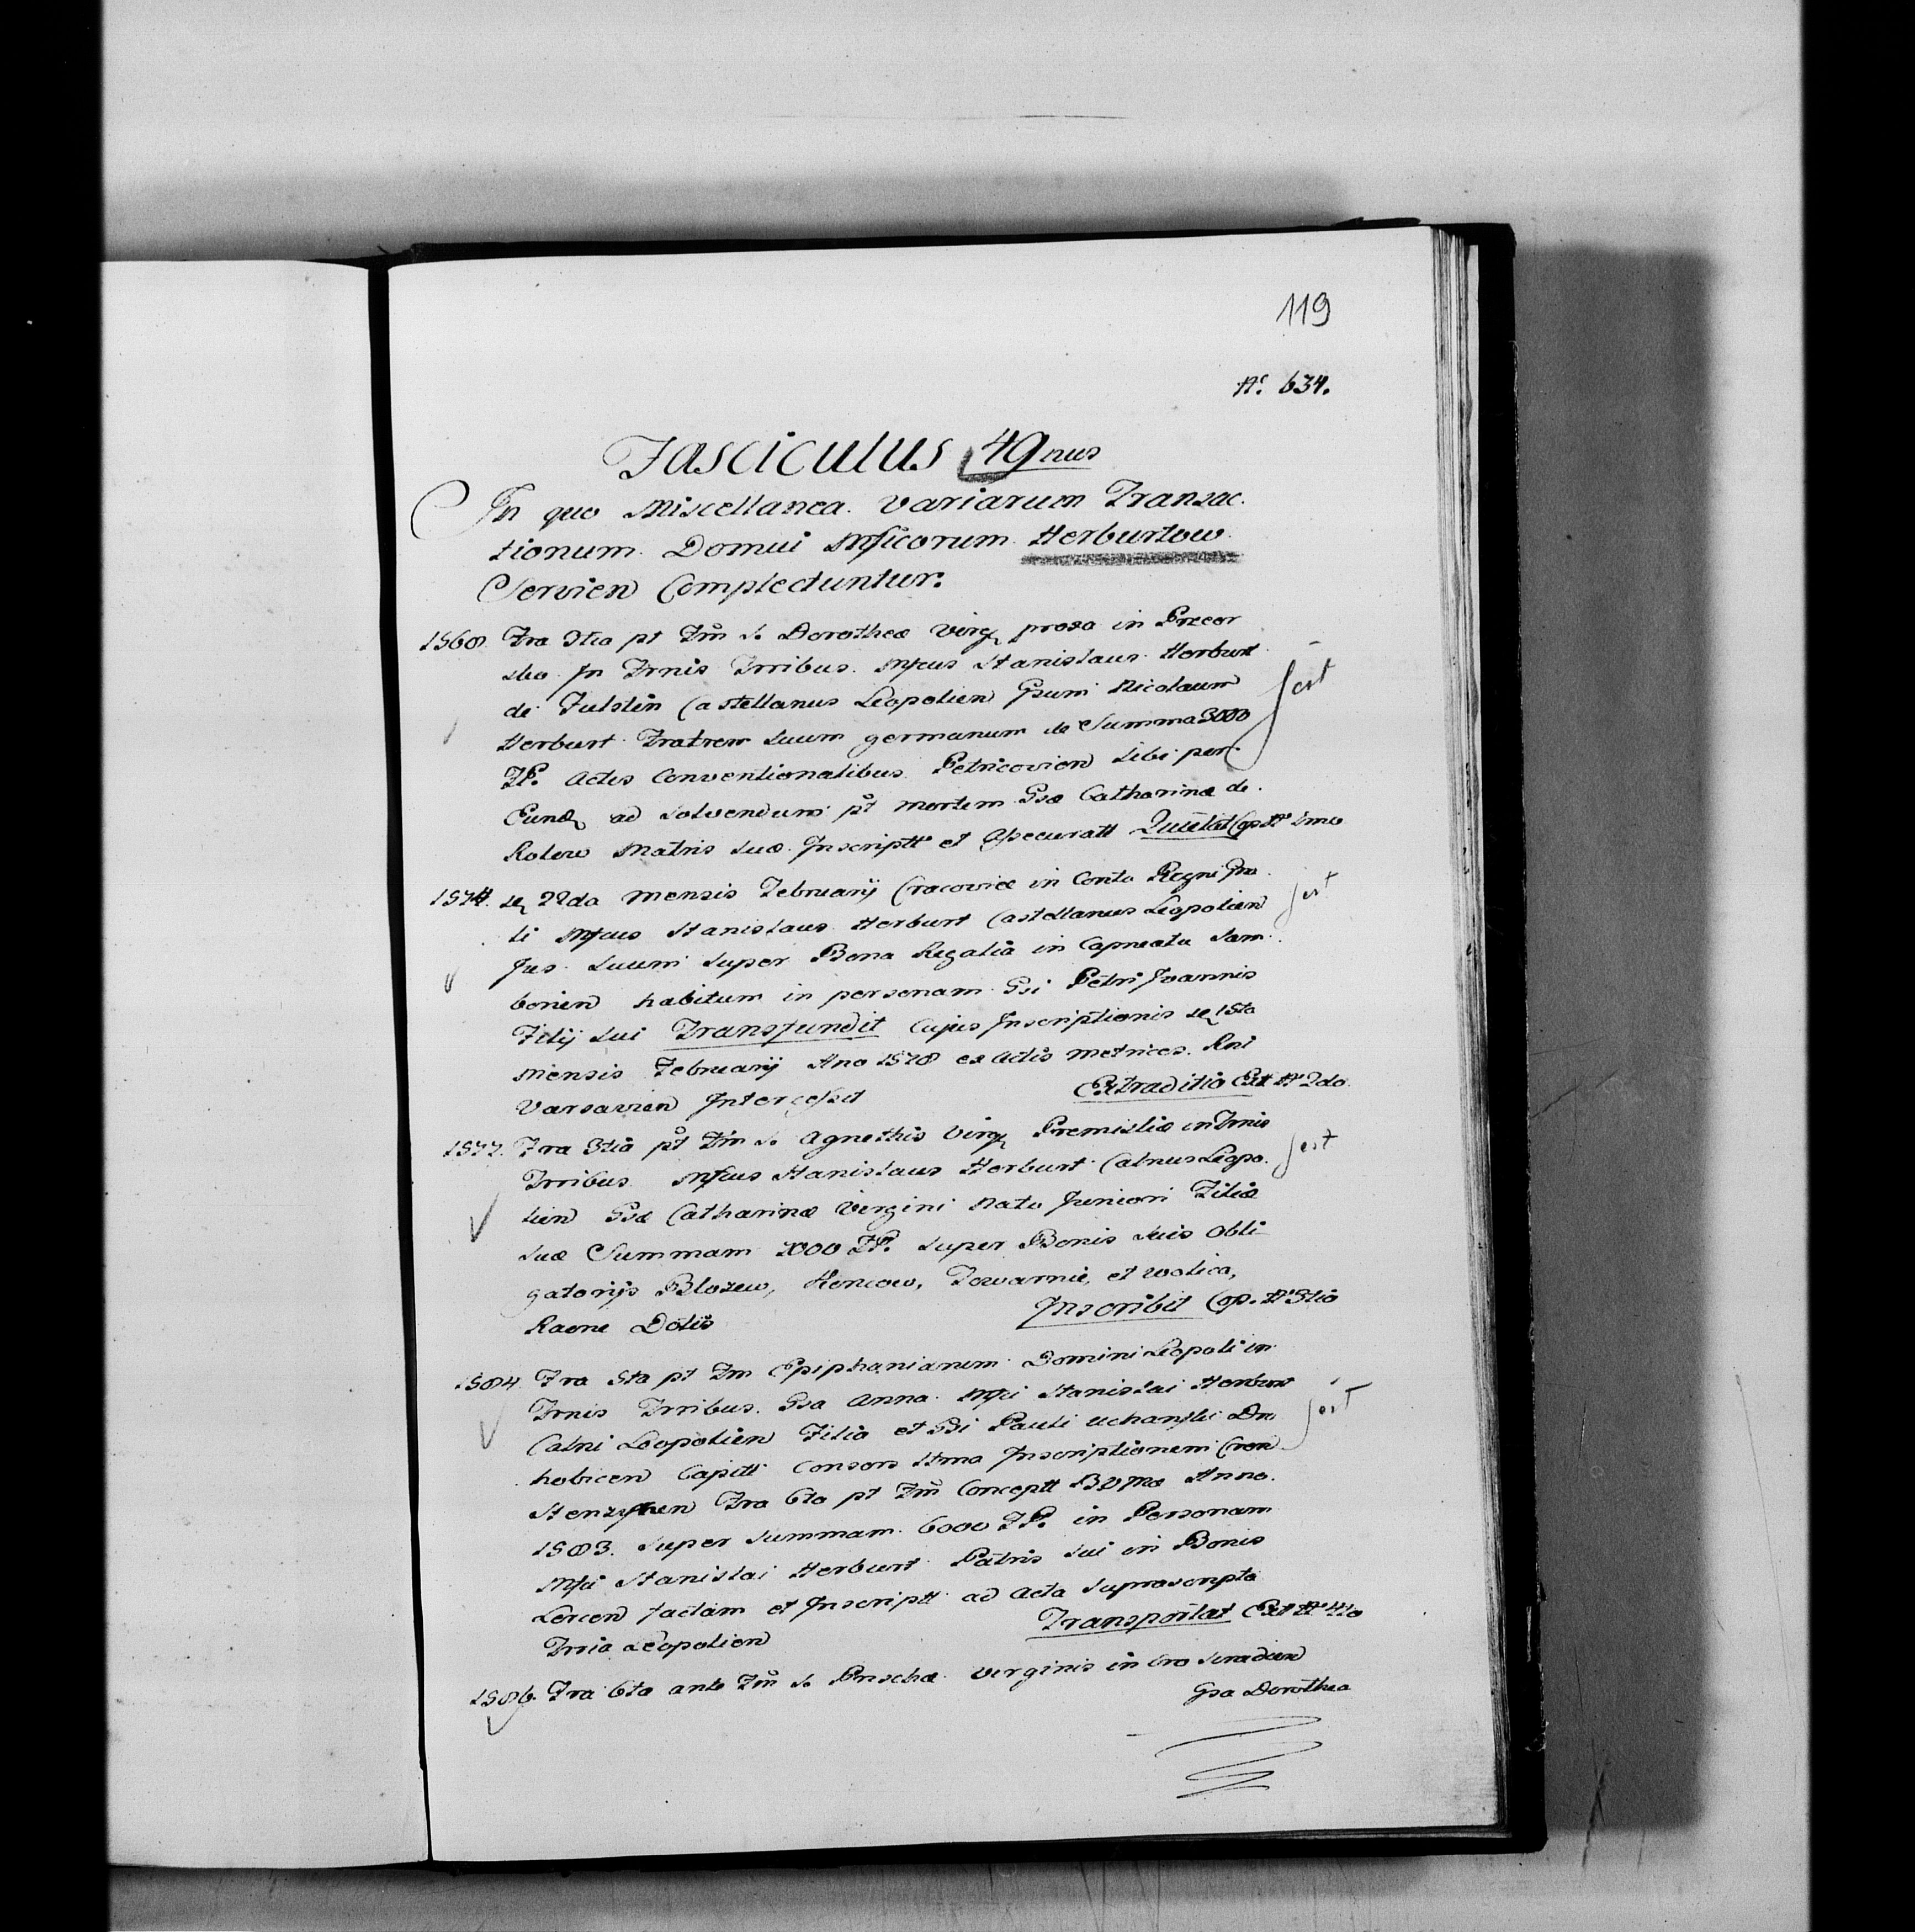 119
N° 634.
Fasciculus 49nus
In quo Miscellanea variarum Transac.
tionum Domui Mficorum Herburtow
Servien Complectuntur.
1560 Fra 3tia pt Fm S. Dorotheæ Virg prosa in
In Trnis Trribus Mfcus Stanislaus Herburt
de Fulstin Castellanus Leopolien Gsum Nicolaum
Herburt Fratrem suum germanum de Summa 3000
FP. Actis Conventionalibus Petricovien sibi per
Eund ad solvendum pt mortem Gsæ Catharinæ de
Rolow Matris suæ Inscriptt et Assecuratt Quietat Cop. N° 1mo
jest
1574. 22da Mensis Februarij Cracoviæ in Contu Regni Gna
li Mfcus Stanislaus Herburt Castellanus Leopolien
Jus suum super Bona Regalia in Capneatu Sam
borien habitum in personam Gsi Petri Joannis
Filij sui Transfundit Cujus Inscriptionis 15ta
Mensis Februarij Ano 1578 ex Actis Metrices Rni
Varsavien Intercessit Extraditio Ext N° 2do
jest
1577. Fra 3tia pt Fm S. Agnethis Virg Premisliæ in Trnis
Trribus Mfcus Stanislaus Herburt Catnus Leopo
lien Gsæ Catharinæ Virgini Natu Juniori Filiæ
suæ Summam 2000 FP. super Bonis suis Obli
gatorijs Blozew, Koniow, Towarnie, et Wolica,
Raone Dotis Inscribit Cop. N° 3tio
jest
1584. Fra 5ta pt Fm Epiphaniarum Domini Leopoli in
Trnis Trribus. Gsa Anna Mfci Stanislai Herburt
Catni Leopolien Filia et Gsi Pauli Uchanski Dro
hobicen Capitt Consors Ltma Inscriptionem Cron
Fra 6ta pt Fm Conceptt BVMæ Anno
1583. super Summam 6000 FP. in Personam
Mfci Stanislai Herburt Patris sui in Bonis
factam et Inscriptt ad Acta suprascripta
Trria Leopolien Transportat Ext N° 4to
jest
1586. Fra 6ta ante Fm S. Priscæ Virginis in
Gsa Dorothea